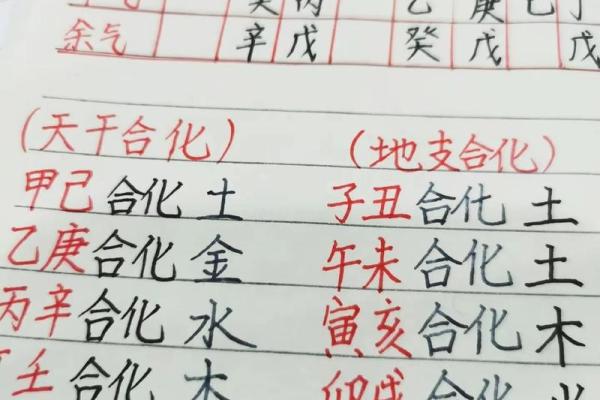 癸 丙 乙 庚 己 丁
余气 辛 戊 癸 戊 戊
(天干合化) (地支合化)
甲己合化土 子丑合化土
乙庚合化金 午未合化土
丙辛合化水 寅亥合化木
壬合化木 卯戌合化火